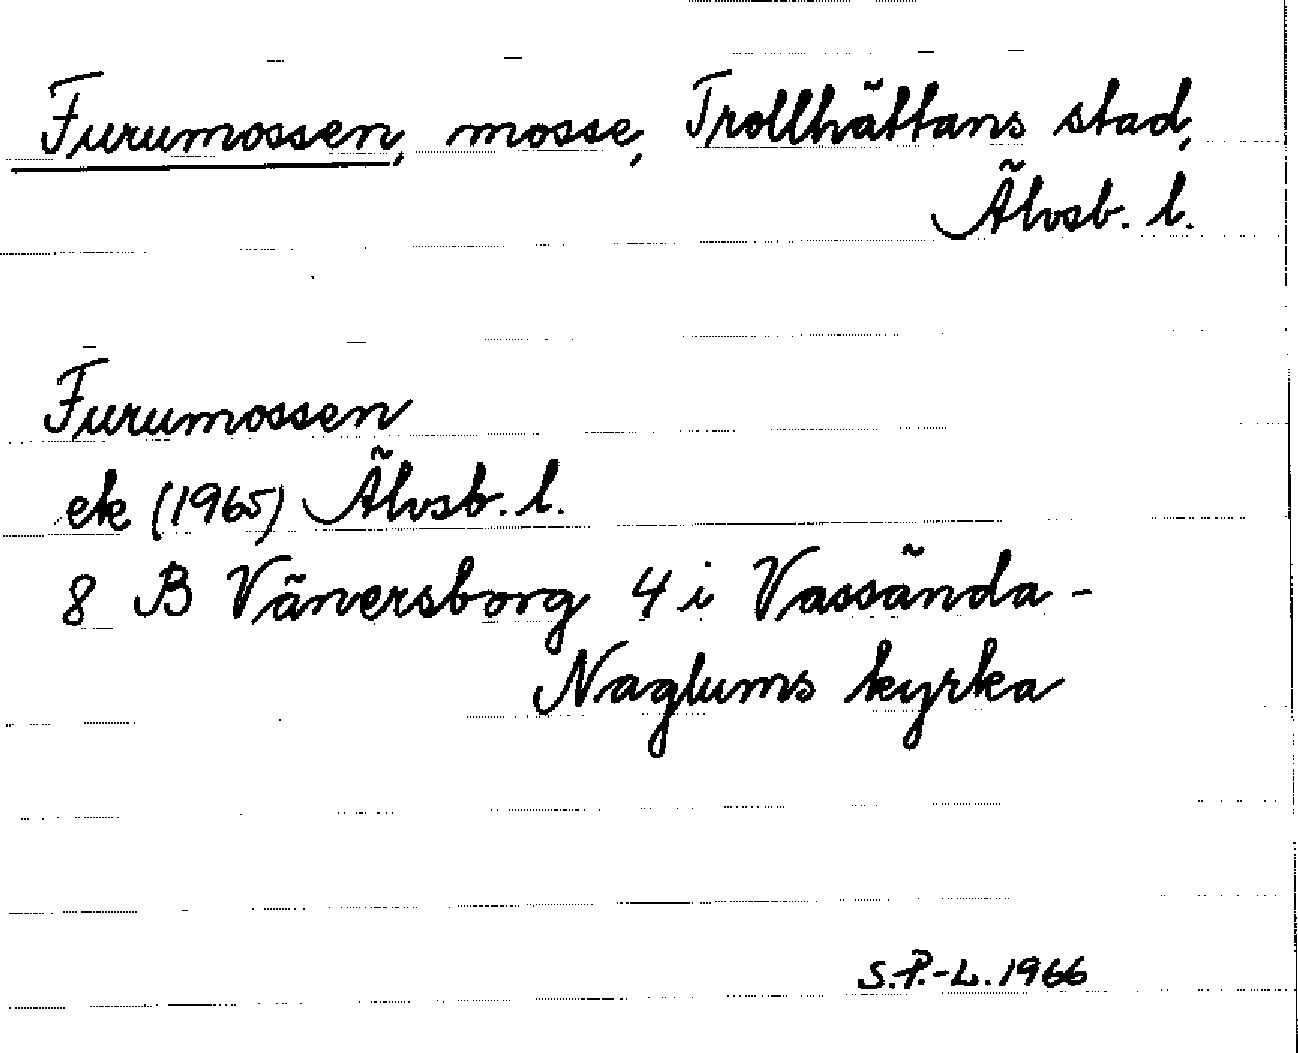 Furumossen, mosse, Trollhättans stad,
Älvsb. l.
Furumossen
ek (1965) Älvsb. l.
8 B Vänersborg 4 i Vassända-
Naglums kyrka
S.P.-L. 1966